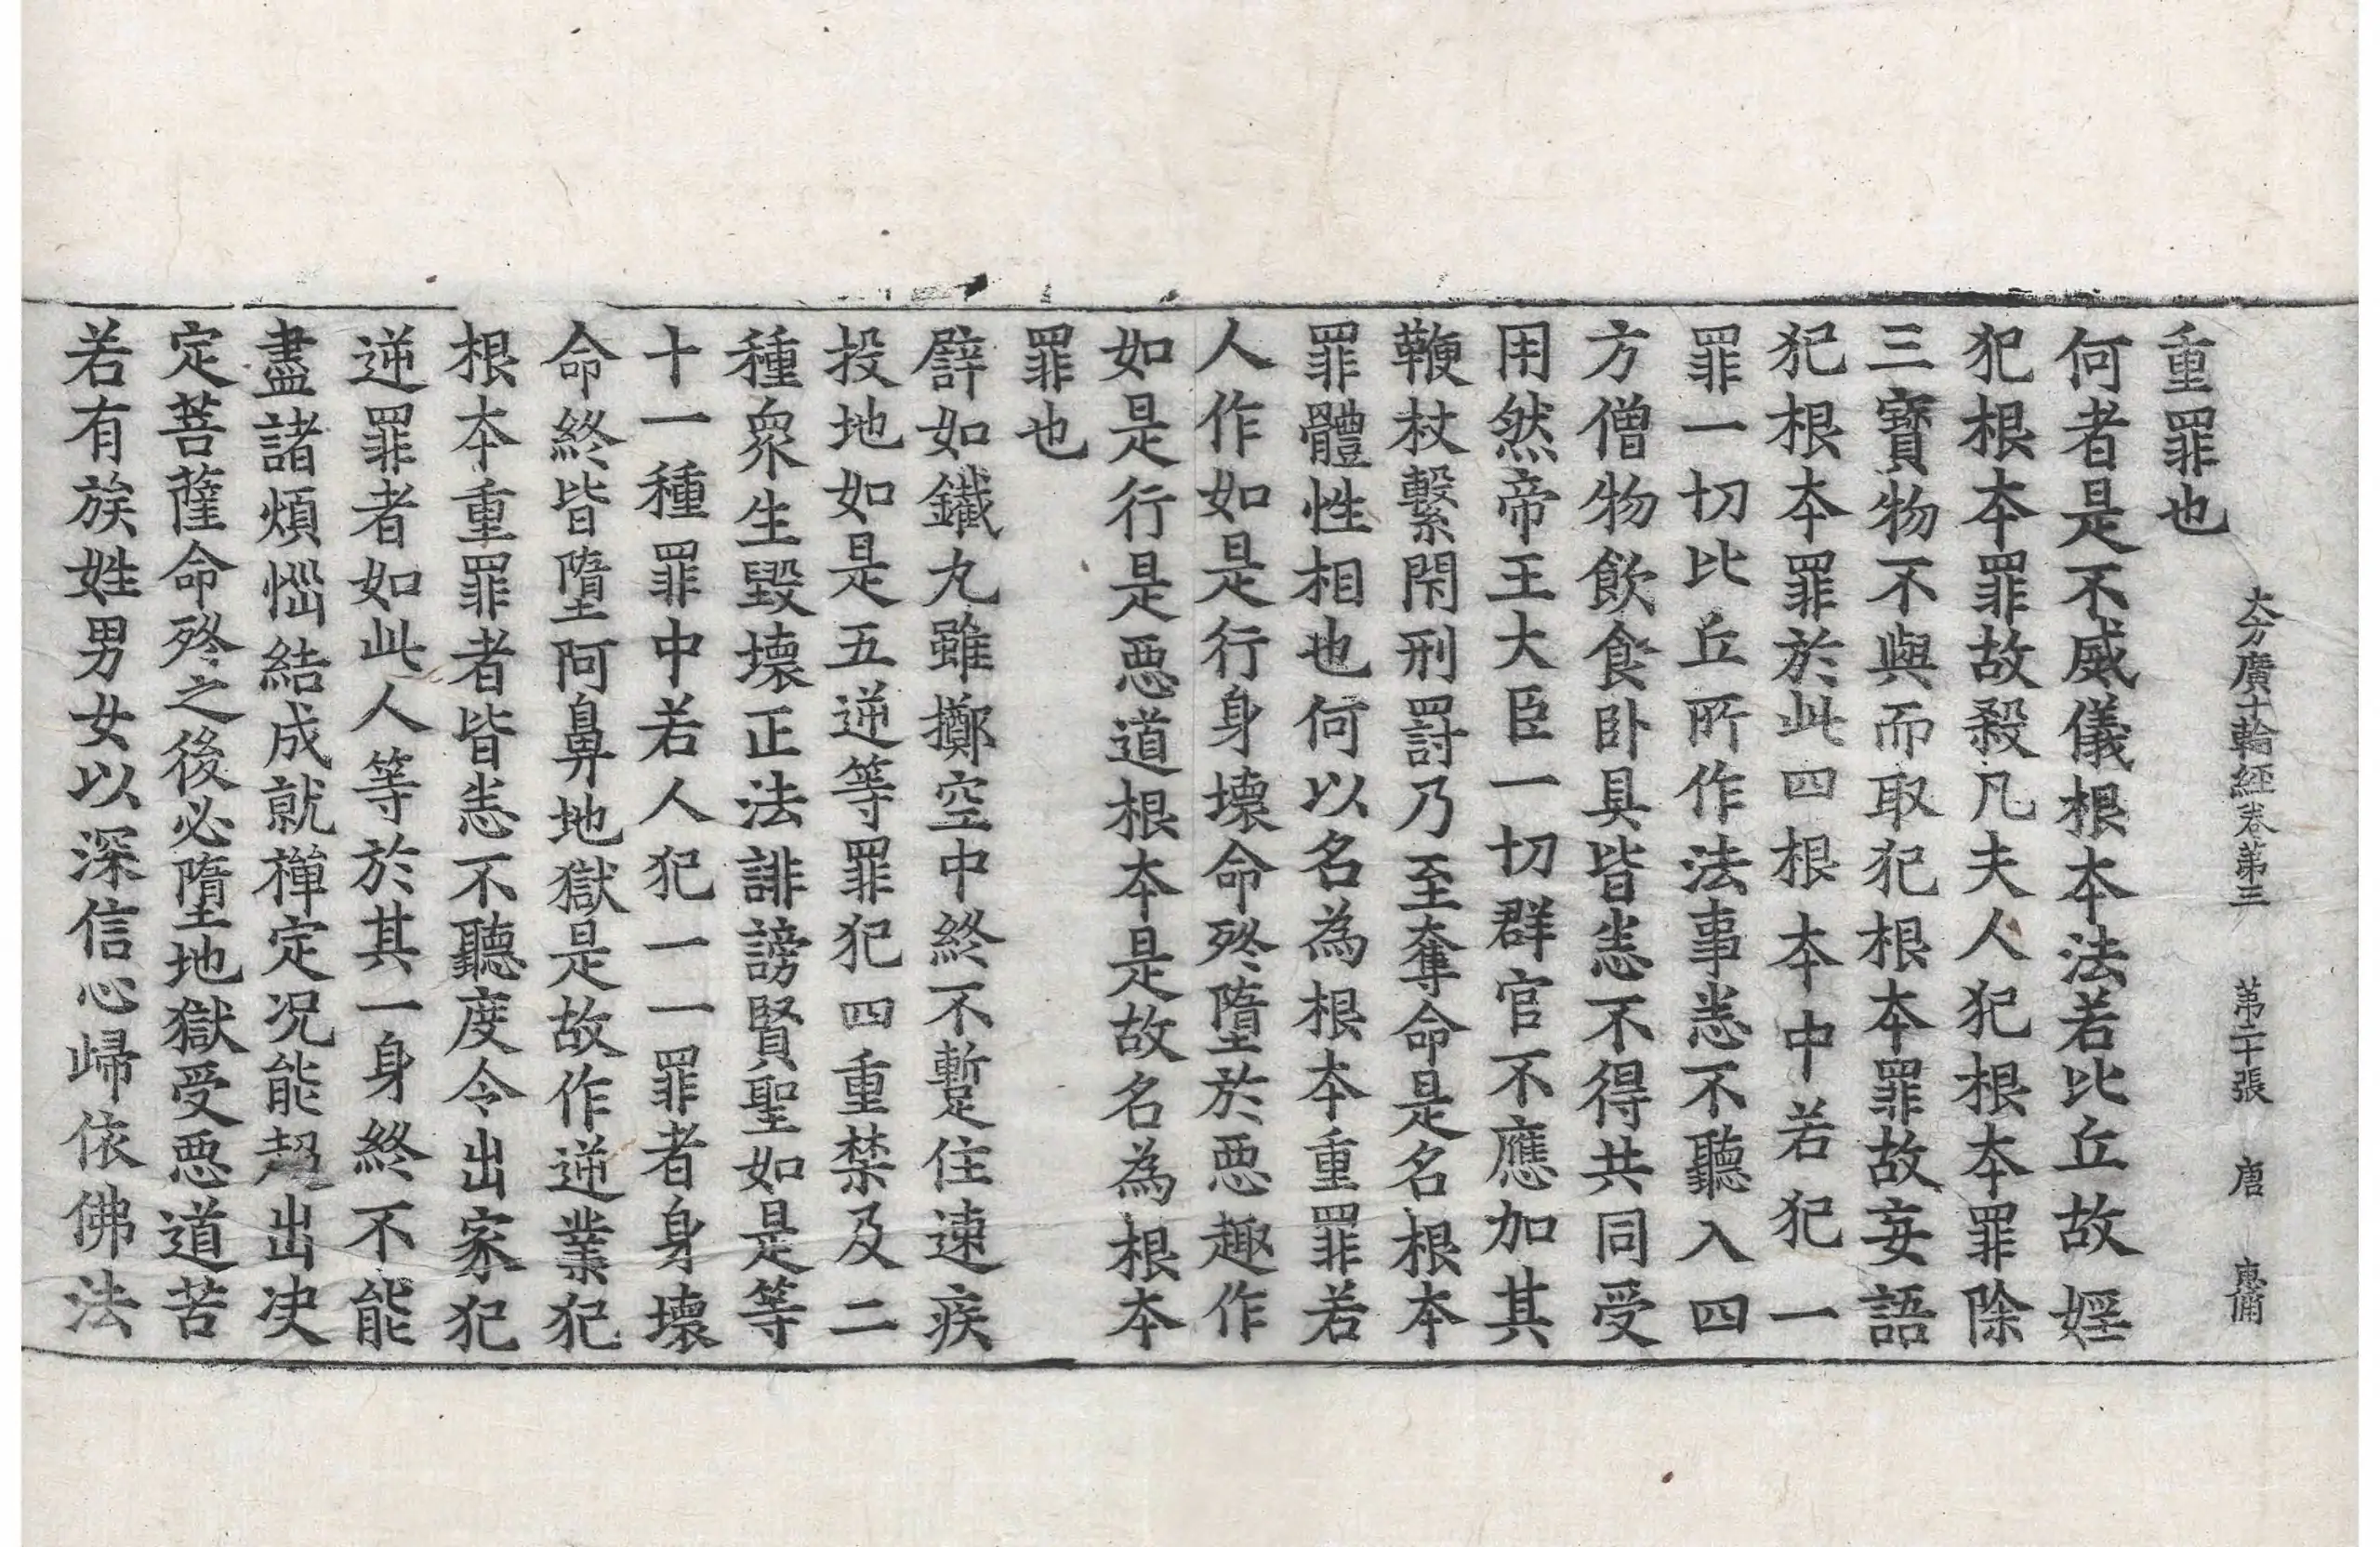 大方廣十輪經卷第三　第二十張　唐　惠備
重罪也
何者是不威儀根本法若比丘故婬
犯根本罪故殺凡夫人犯根本罪除
三寶物不與而取犯根本罪故妄語
犯根本罪於此四根本中若犯一
罪一切比丘所作法事悉不聽入四
方僧物飲食卧具皆悉不得共同受
用然帝王大臣一切群官不應加其
鞭杖繫閇刑罸乃至奪命是名根本
罪體性相也何以名為根本重罪若
人作如是行身壞命殁墮於惡趣作
如是行是惡道根本是故名為根本
罪也
譬如鐵丸雖擲空中終不蹔住速疾
投地如是五逆等罪犯四重禁及二
種衆生毀壞正法誹謗賢聖如是等
十一種罪中若人犯一一罪者身壞
命終皆墮阿鼻地獄是故作逆業犯
根本重罪者皆悉不聽度令出家犯
逆罪者如此人等於其一身終不能
盡諸煩惱結成就禪定况能超出决
定菩薩命殁之後必墮地獄受惡道苦
若有族姓男女以深信心歸依佛法